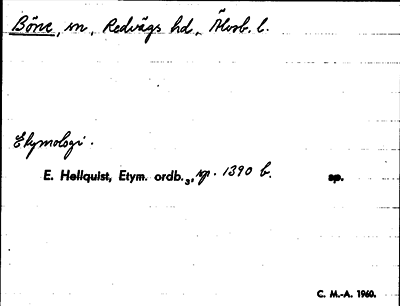 Böne, sn, Redvägs hd, Älvsb. l.
Etymologi.
E. Hellquist, Etym. ordb.3, sp. 1390 b. sp.
C. M.-A. 1960.